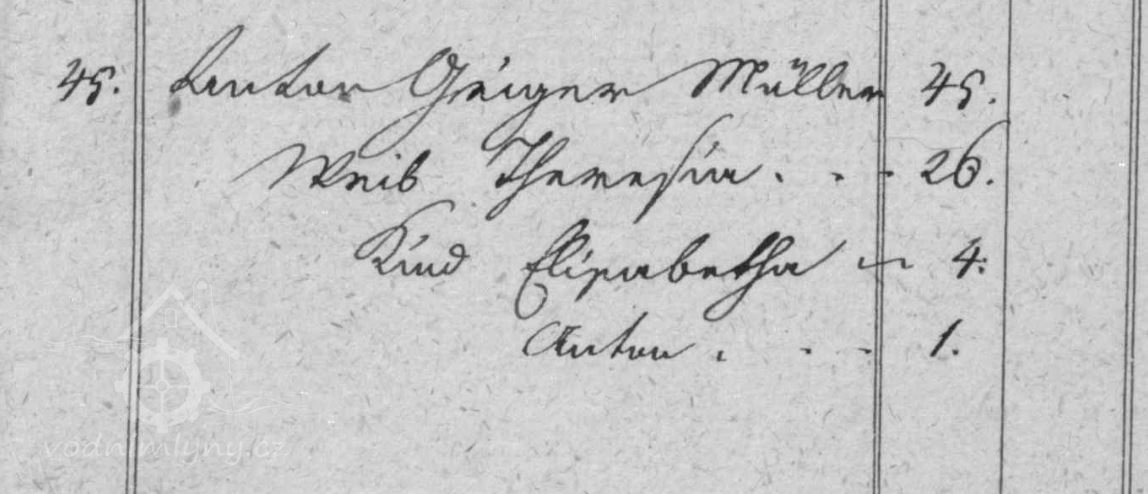 45. Anton Geiger Müller 45.
Weib Theresia . . . 26.
Kind Elisabetha — 4.
Anton . . . 1.
vodnimlyny.cz